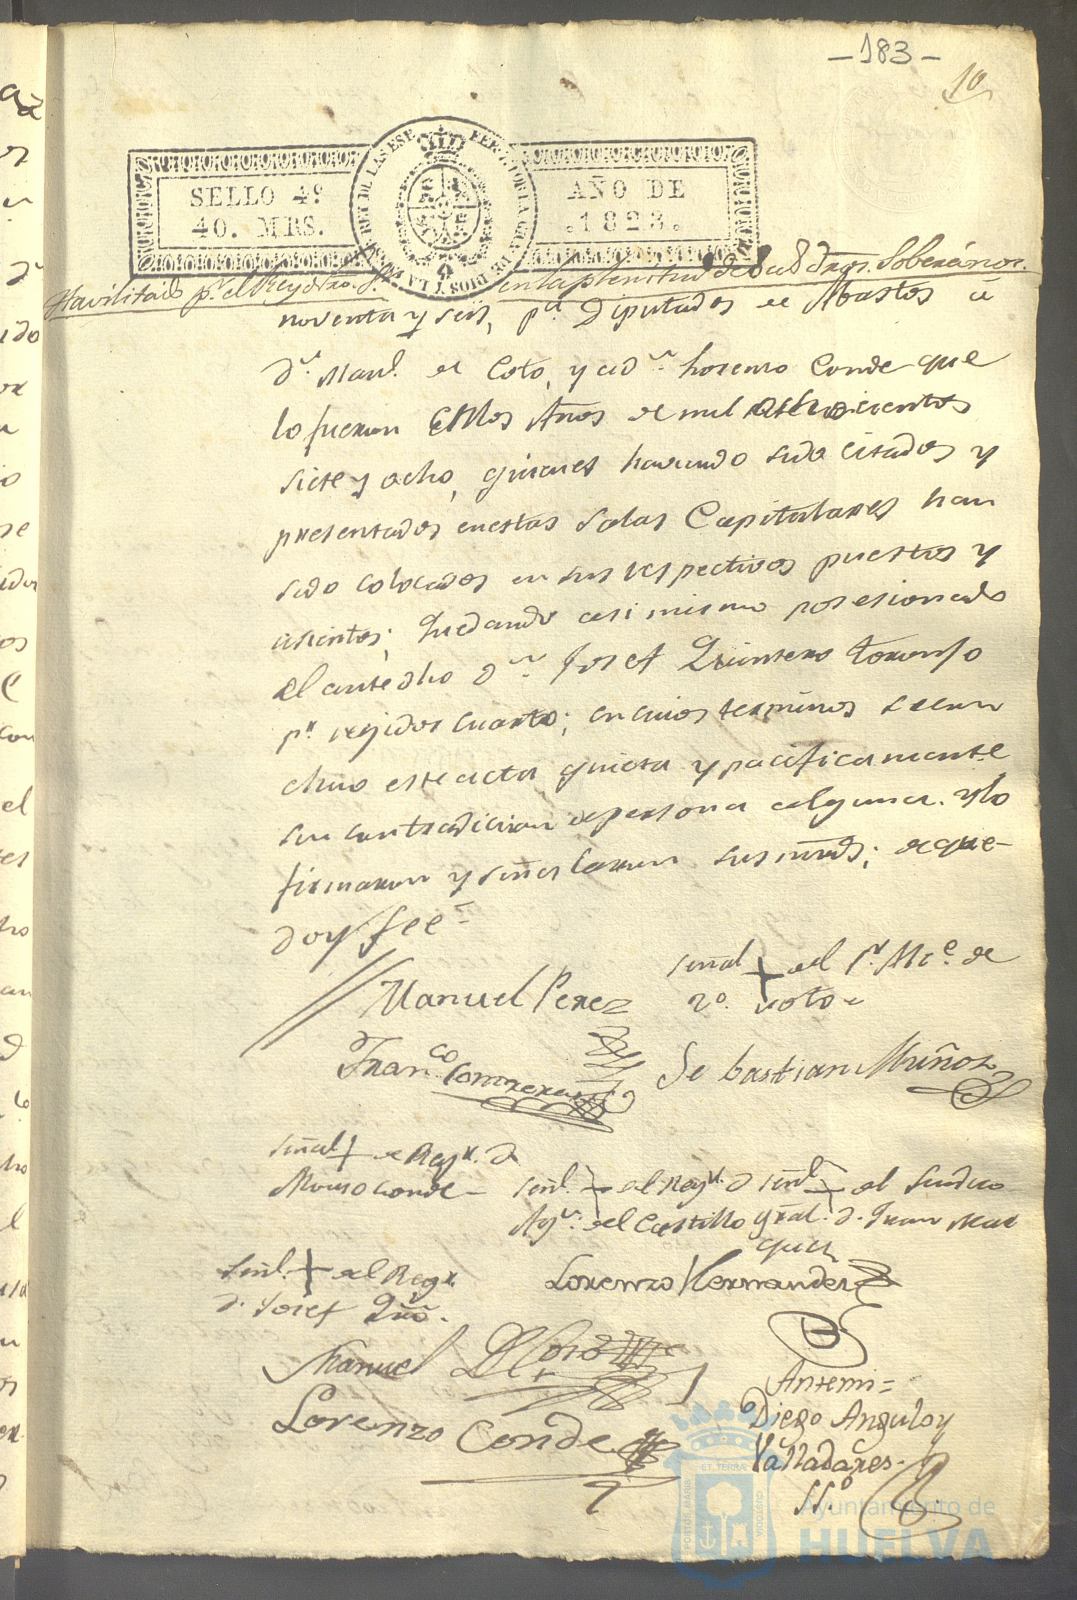 -183-
10
SELLO 4º AÑO DE
40. MRS. .1823.
Havilitado pr. el Rey Ntro. Sr. en la plenitud de sus dros. Soberanos.
noventa y seis, pa. Diputados de Abastos a
Dn. Manl. del Coto, y a Dn. Lorenzo Conde que
lo fueron en los Años de mil ochocientos
siete y ocho, quienes haviendo sido citados y
presentados en estas Salas Capitulares han
sido colocados en sus respectivos puestos y
asientos; quedando asi mismo posesionado
el antedho Dn. Josef Quintero
pr. regidor cuarto; en cuios terminos se con
cluio este acta quieta y pacificamente
sin contradicion de persona alguna. y lo
firmaron y señalaron sus mrds; de que
doy fee
Manuel Perez
señal + del Sr. Alce. de
2º. voto
Franco. Contreras
Sebastian Muñoz
señal + de Regr. D.
Alonso Conde
señl. + del Regr. D
Agn. del Castillo
señl + del Sindico
gral. D. Juan Mar
quez
señl. + del Regr.
D. Josef Qro.
Lorenzo Hernandez
Manuel Del Coto
Lorenzo Conde
Antemi =
Diego Angulo y
Valladares.
SSº
Ayuntamiento de
HUELVA